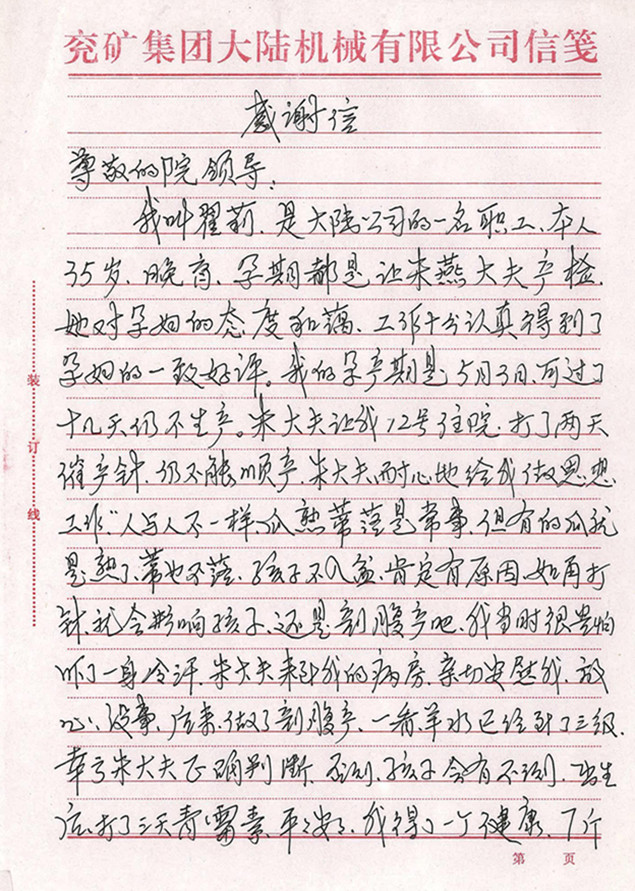 兖矿集团大陆机械有限公司信笺
感谢信
尊敬的院领导:
我叫翟莉、是大陆公司的一名职工、本人
35岁、晚育、孕期都是让朱燕大夫产检、
她对孕妇的态度和蔼、工作十分认真得到了
孕妇的一致好评。我的孕产期是5月3日、可过了
十几天仍不生产。朱大夫让我12号住院、打了两天
催产针、仍不能顺产、朱大夫耐心地给我做思想
工作“人与人不一样、瓜熟蒂落是常事、但有的瓜就
是熟了、蒂也不落、孩子不入盆、肯定有原因、如再打
针、就会影响孩子、还是剖腹产吧、我当时很害怕
吓了一身冷汗、朱大夫来到我的病房、亲切安慰我、放
心、没事、后来、做了剖腹产、一看羊水已经到了三级、
幸亏朱大夫正确判断、否则、孩子会有不测、出生
后、打了三天青霉素、平安了、我得了一个健康、7斤
装
订
线
第 页